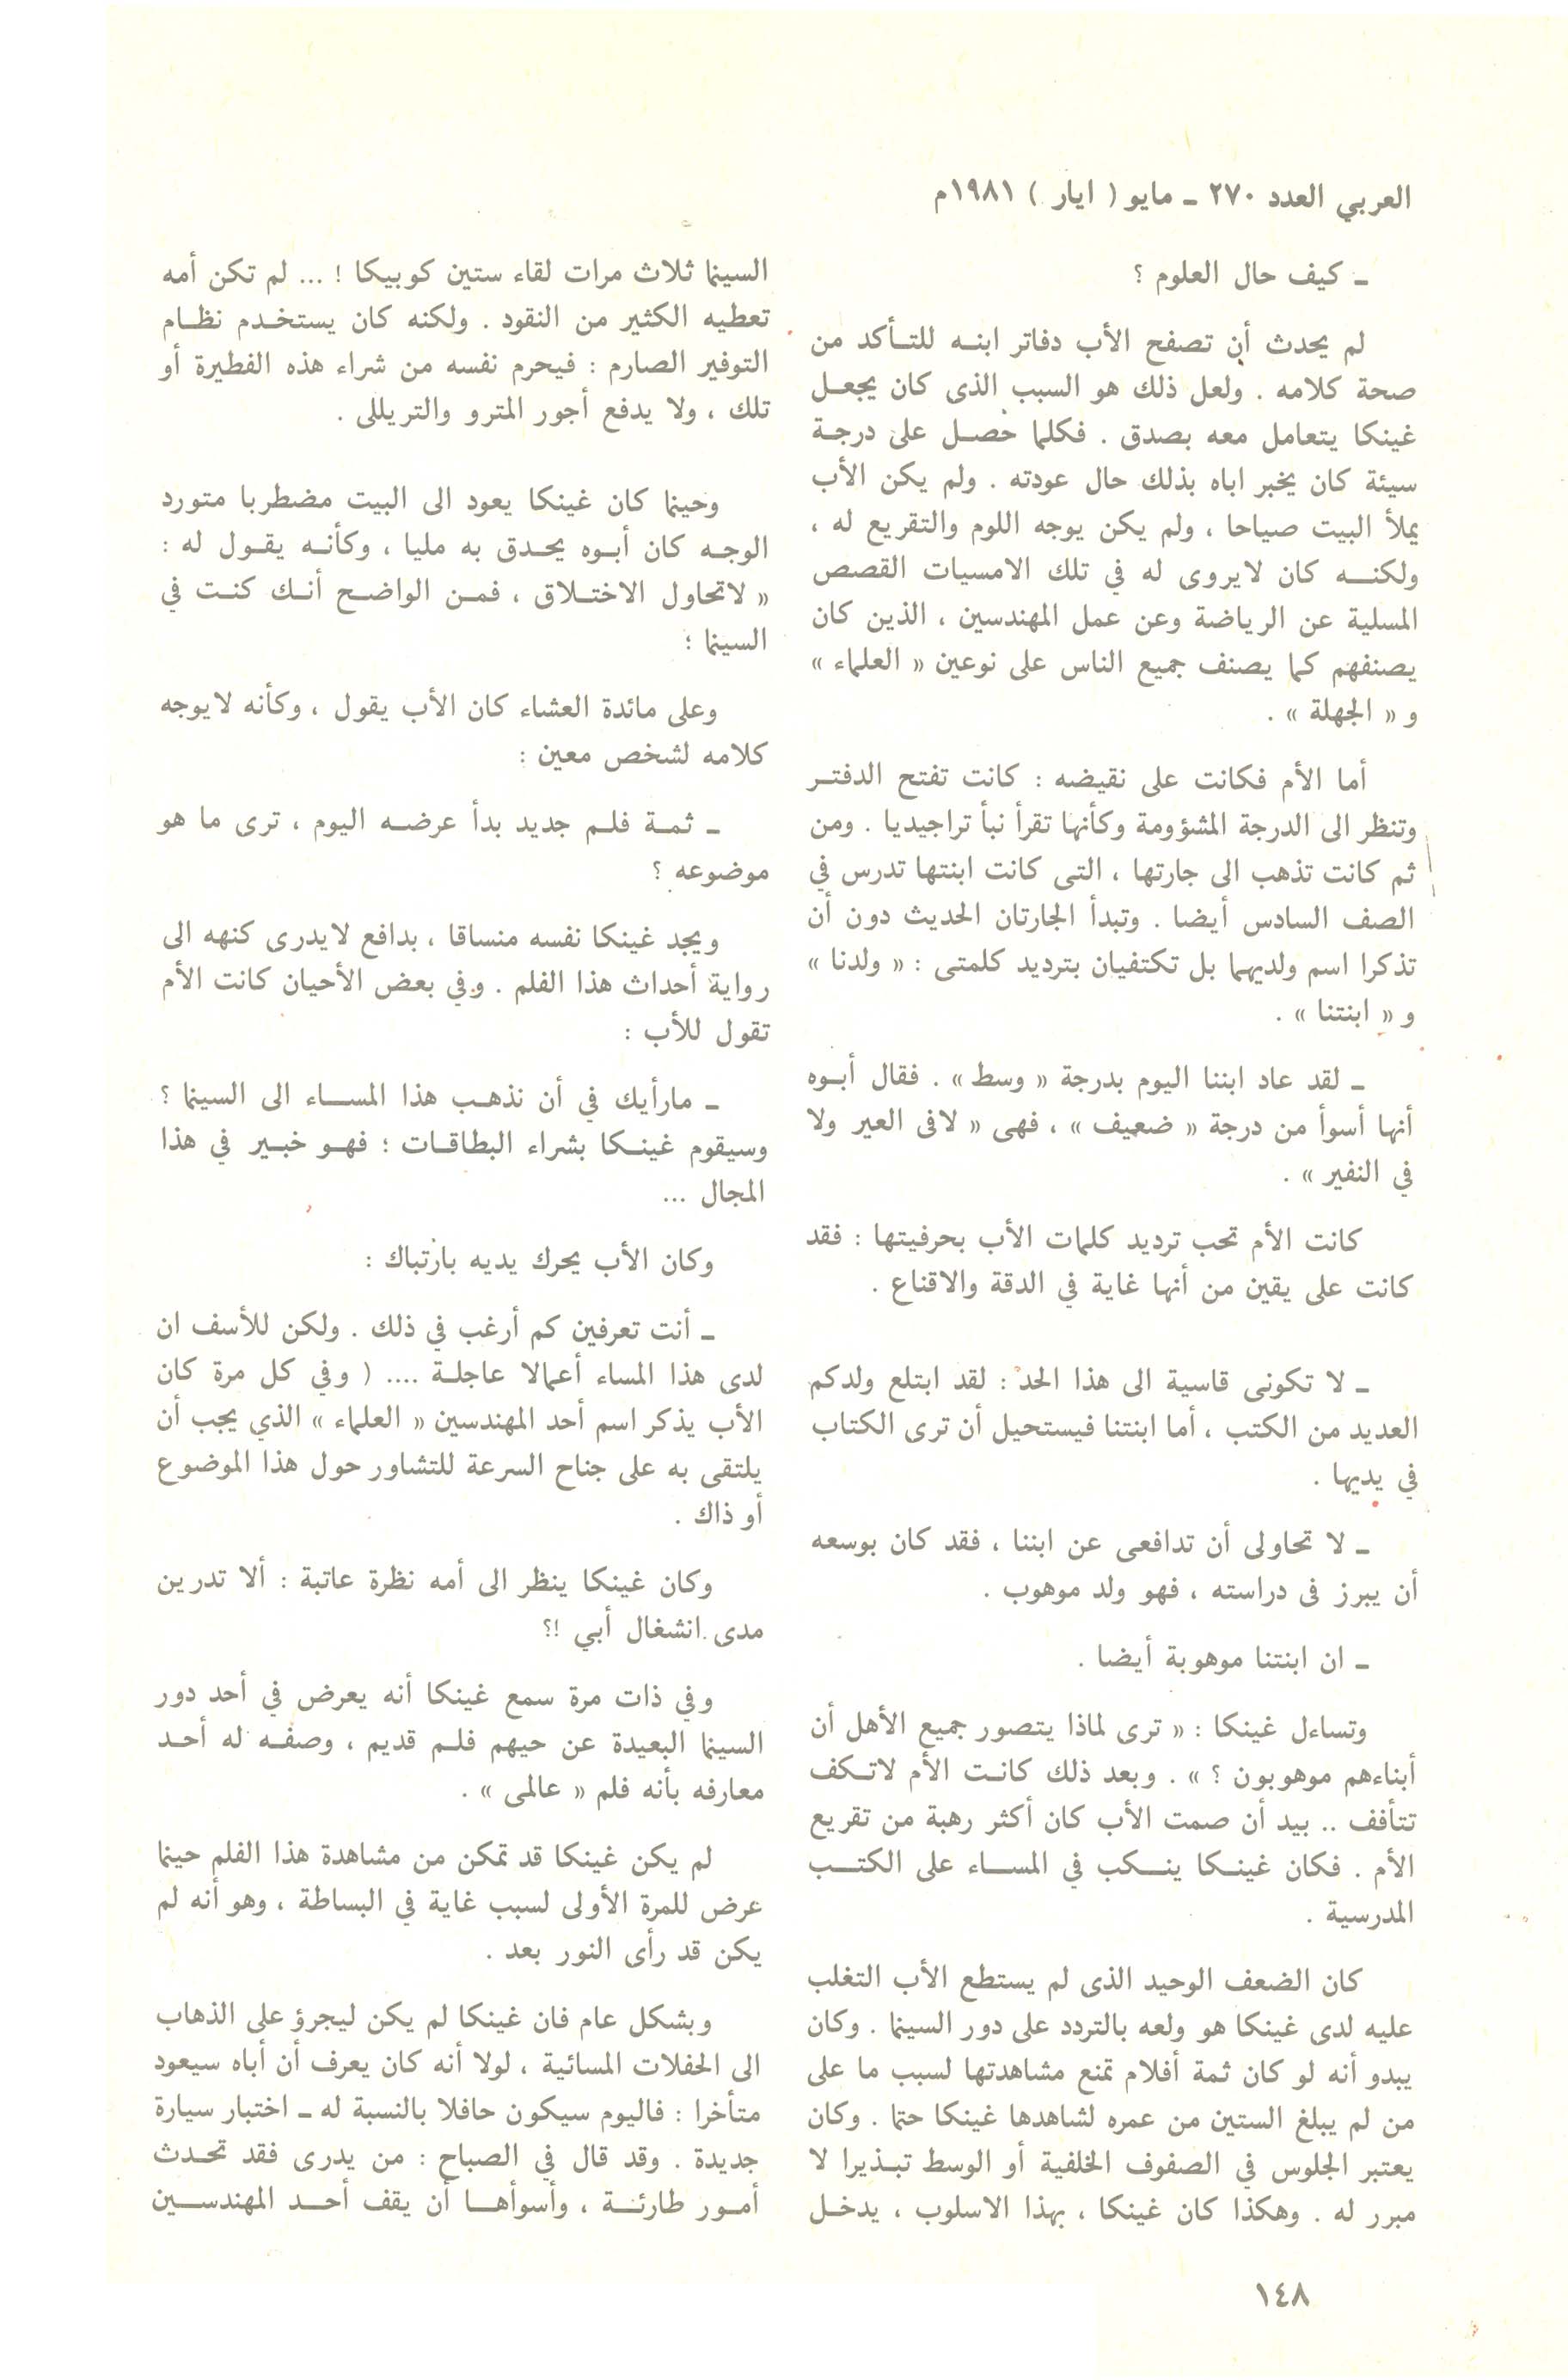 العربي العدد ٢٧٠ ـ مايو ( ايار ) ١٩٨١م
ـ كيف حال العلوم ؟
لم يحدث أن تصفح الأب دفاتر ابنه للتأكد من
صحة كلامه . ولعل ذلك هو السبب الذى كان يجعل
غينكا يتعامل معه بصدق . فكلما حصل على درجة
سيئة كان يخبر اباه بذلك حال عودته . ولم يكن الأب
يملأ البيت صياحا ، ولم يكن يوجه اللوم والتقريع له ،
ولكنه كان لايروى له في تلك الامسيات القصص
المسلية عن الرياضة وعن عمل المهندسين ، الذين كان
يصنفهم كما يصنف جميع الناس على نوعين « العلماء »
و « الجهلة » .
أما الأم فكانت على نقيضه : كانت تفتح الدفتر
وتنظر الى الدرجة المشؤومة وكأنها تقرأ نبأ تراجيديا . ومن
ثم كانت تذهب الى جارتها ، التى كانت ابنتها تدرس في
الصف السادس أيضا . وتبدأ الجارتان الحديث دون أن
تذكرا اسم ولديهما بل تكتفيان بترديد كلمتى : « ولدنا »
و « ابنتنا » .
ـ لقد عاد ابننا اليوم بدرجة « وسط » . فقال أبوه
أنها أسوأ من درجة « ضعيف » ، فهى « لافى العير ولا
في النفير » .
كانت الأم تحب ترديد كلمات الأب بحرفيتها : فقد
كانت على يقين من أنها غاية في الدقة والاقناع .
ـ لا تكونى قاسية الى هذا الحد : لقد ابتلع ولدكم
العديد من الكتب ، أما ابنتنا فيستحيل أن ترى الكتاب
في يديها .
ـ لا تحاولى أن تدافعى عن ابننا ، فقد كان بوسعه
أن يبرز فى دراسته ، فهو ولد موهوب .
ـ ان ابنتنا موهوبة أيضا .
وتساءل غينكا : « ترى لماذا يتصور جميع الأهل أن
أبناءهم موهوبون ؟ » . وبعد ذلك كانت الأم لاتكف
تتأفف .. بيد أن صمت الأب كان أكثر رهبة من تقريع
الأم . فكان غينكا ينكب في المساء على الكتب
المدرسية .
كان الضعف الوحيد الذى لم يستطع الأب التغلب
عليه لدى غينكا هو ولعه بالتردد على دور السينما . وكان
يبدو أنه لو كان ثمة أفلام تمنع مشاهدتها لسبب ما على
من لم يبلغ الستين من عمره لشاهدها غينكا حتما . وكان
يعتبر الجلوس في الصفوف الخلفية أو الوسط تبذيرا لا
مبرر له . وهكذا كان غينكا ، بهذا الاسلوب ، يدخل
السينما ثلاث مرات لقاء ستين كوبيكا ! ... لم تكن أمه
تعطيه الكثير من النقود . ولكنه كان يستخدم نظام
التوفير الصارم : فيحرم نفسه من شراء هذه الفطيرة أو
تلك ، ولا يدفع أجور المترو والتريللى .
وحينما كان غينكا يعود الى البيت مضطربا متورد
الوجه كان أبوه يحدق به مليا ، وكأنه يقول له :
« لاتحاول الاختلاق ، فمن الواضح أنك كنت في
السينما ؛
وعلى مائدة العشاء كان الأب يقول ، وكأنه لايوجه
كلامه لشخص معين :
ـ ثمة فلم جديد بدأ عرضه اليوم ، ترى ما هو
موضوعه ؟
ويجد غينكا نفسه منساقا ، بدافع لايدرى كنهه الى
رواية أحداث هذا الفلم . وفي بعض الأحيان كانت الأم
تقول للأب :
ـ مارأيك في أن نذهب هذا المساء الى السينما ؟
وسيقوم غينكا بشراء البطاقات ؛ فهو خبير في هذا
المجال ...
وكان الأب يحرك يديه بارتباك :
ـ أنت تعرفين كم أرغب في ذلك . ولكن للأسف ان
لدى هذا المساء أعمالا عاجلة .... ( وفي كل مرة كان
الأب يذكر اسم أحد المهندسين « العلماء » الذي يجب أن
يلتقى به على جناح السرعة للتشاور حول هذا الموضوع
أو ذاك .
وكان غينكا ينظر الى أمه نظرة عاتبة : ألا تدرين
مدى انشغال أبي !؟
وفي ذات مرة سمع غينكا أنه يعرض في أحد دور
السينما البعيدة عن حيهم فلم قديم ، وصفه له أحد
معارفه بأنه فلم « عالمى » .
لم يكن غينكا قد تمكن من مشاهدة هذا الفلم حينما
عرض للمرة الأولى لسبب غاية في البساطة ، وهو أنه لم
يكن قد رأى النور بعد .
وبشكل عام فان غينكا لم يكن ليجرؤ على الذهاب
الى الحفلات المسائية ، لولا أنه كان يعرف أن أباه سيعود
متأخرا : فاليوم سيكون حافلا بالنسبة له ـ اختبار سيارة
جديدة . وقد قال في الصباح : من يدرى فقد تحدث
أمور طارئة ، وأسوأها أن يقف أحد المهندسين
١٤٨